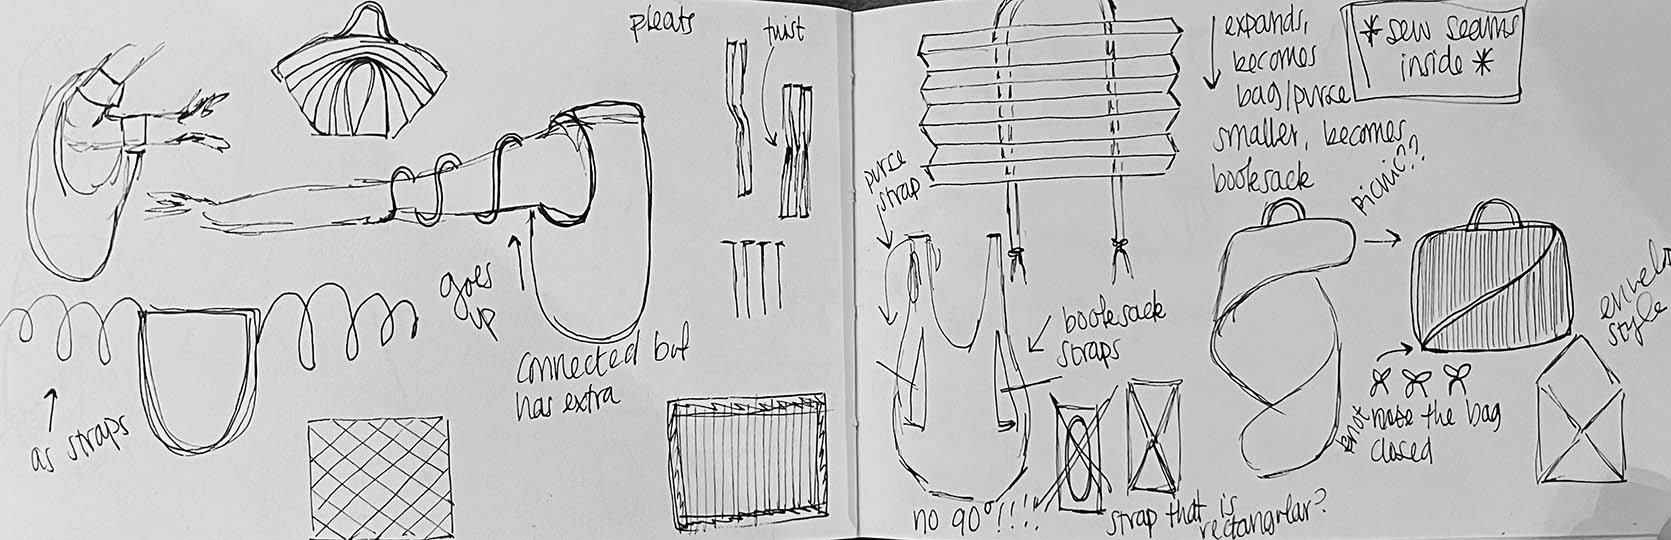 pleats
twist
goes
up
connected but
has extra
as straps
expands,
becomes
bag/purse
smaller, becomes
booksack
*sew seams
inside*
purse
strap
picnic??
booksack
straps
envelope
style
knot the bag
closed
no 90°!!!!
strap that is
rectangular?